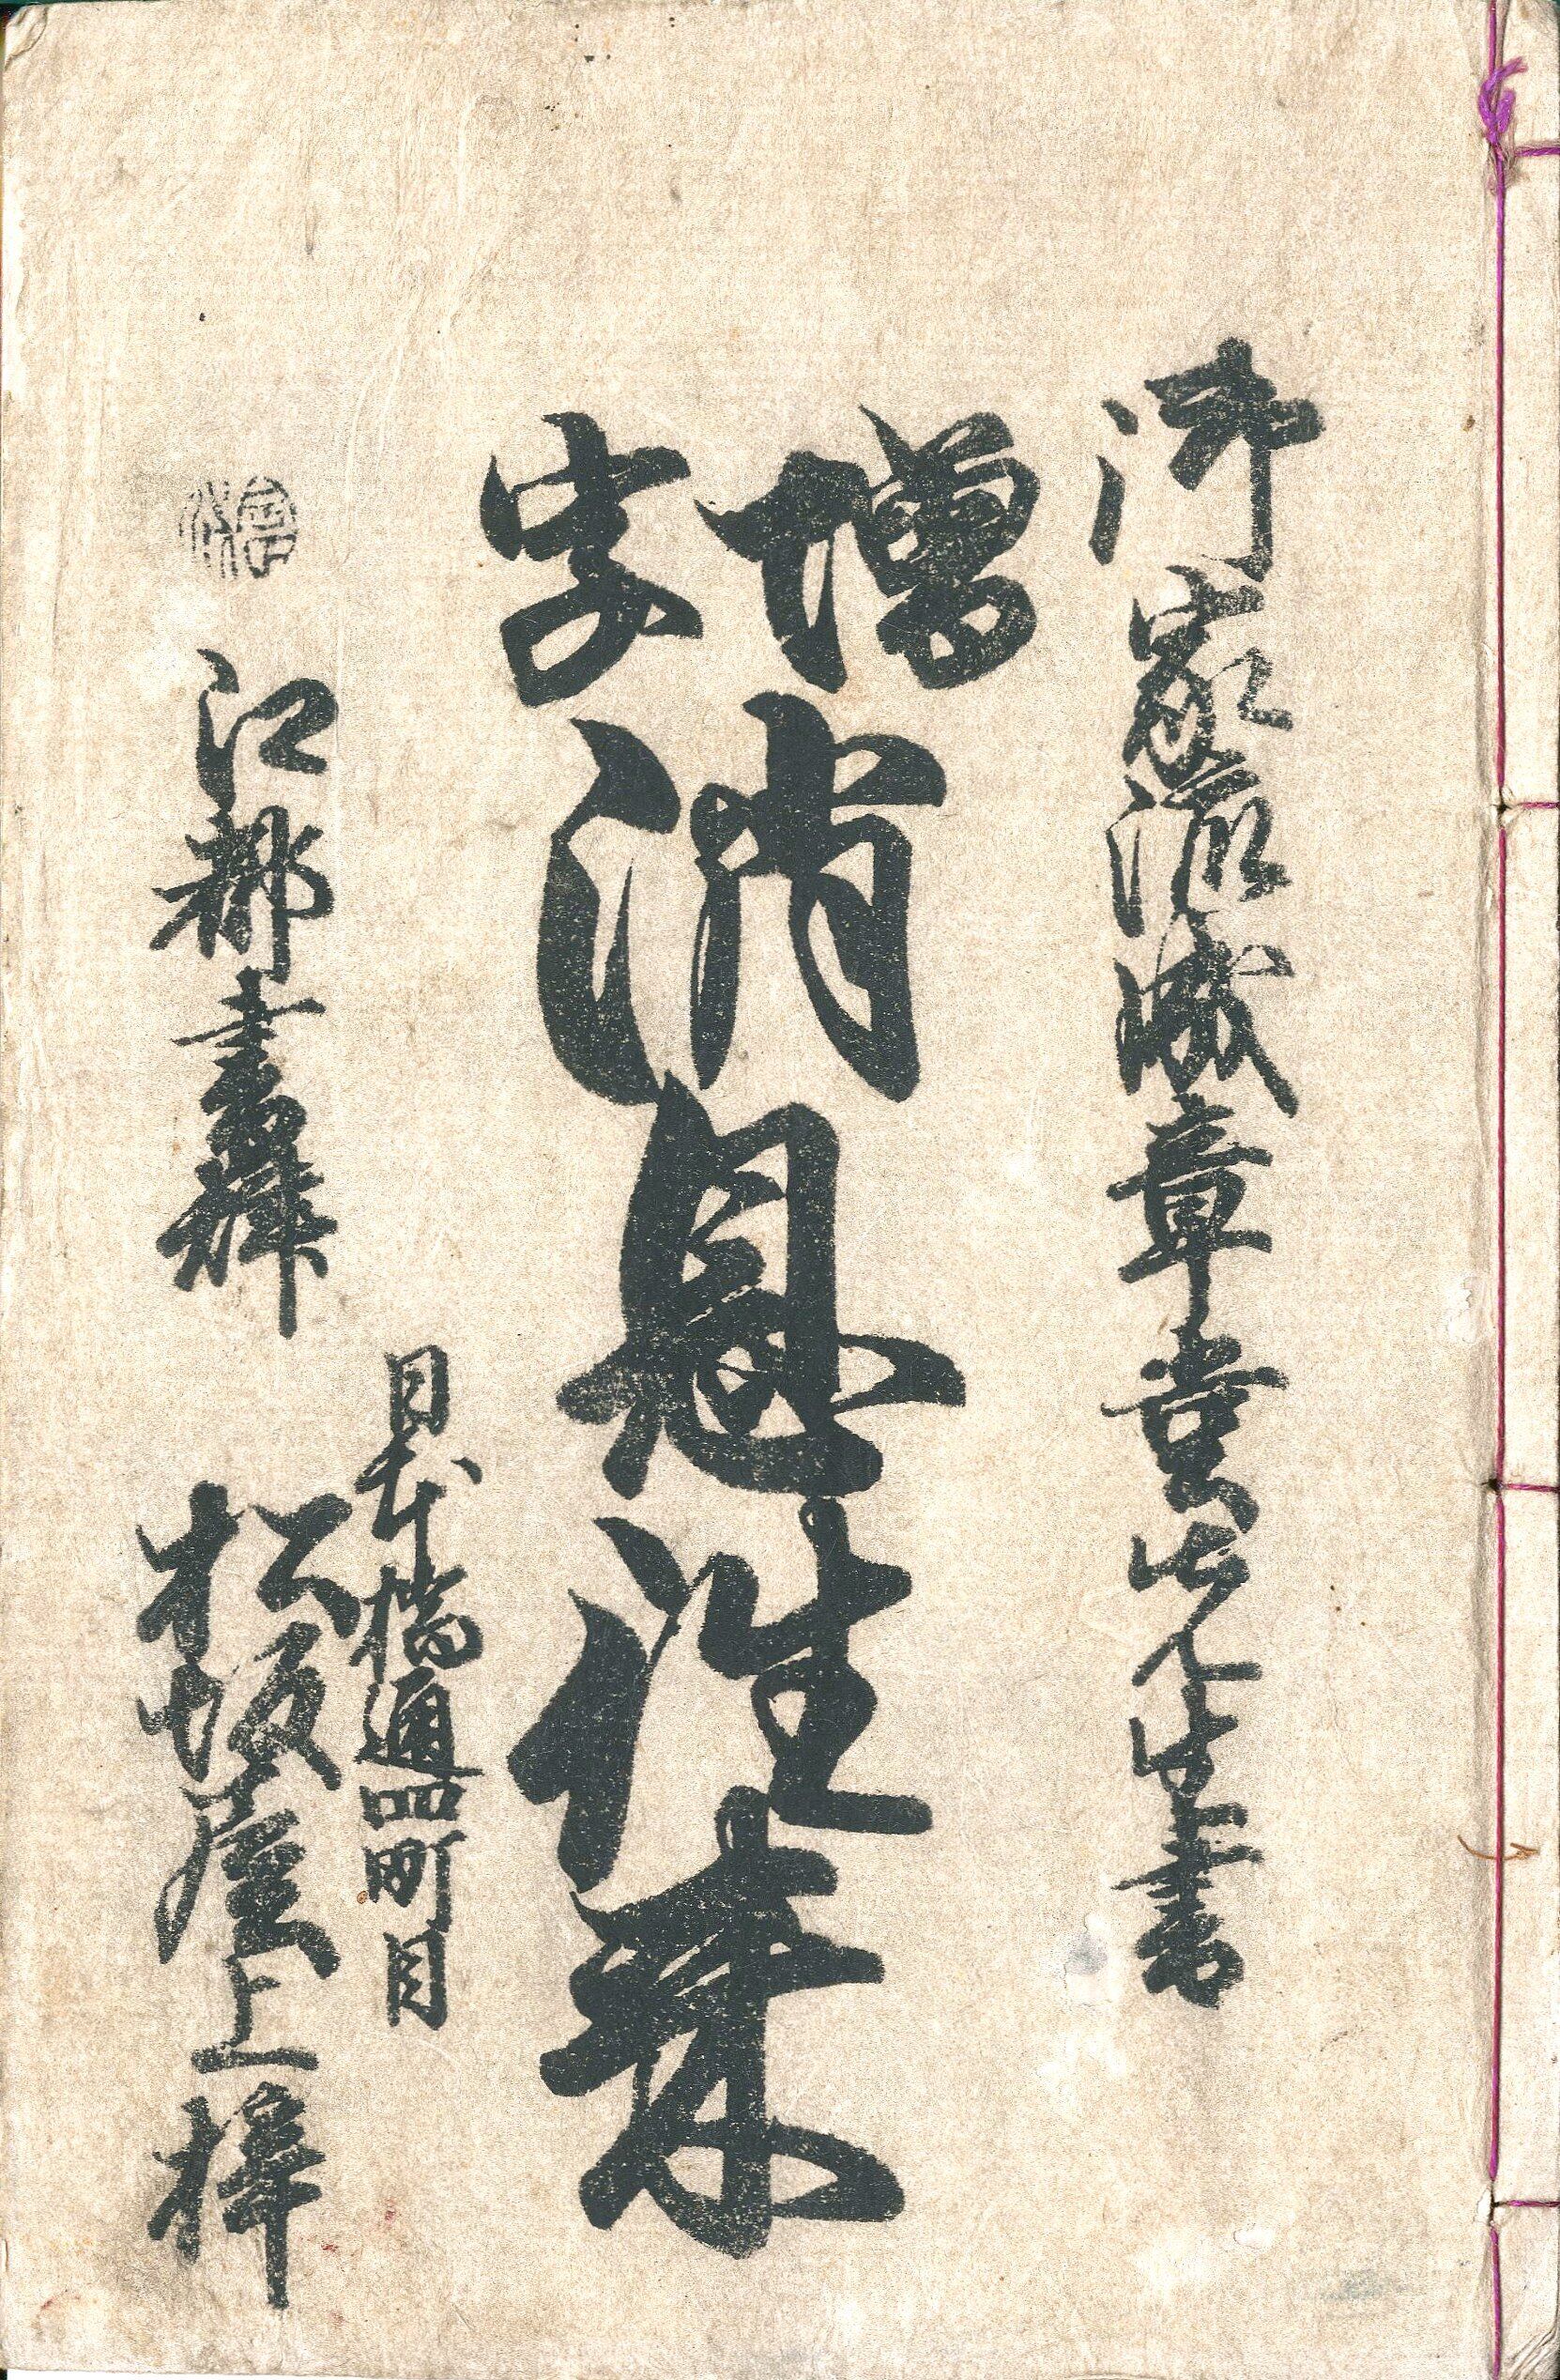 御家流滕章堂先生書
増字
消息往来
江都書肆
日本橋通四町目
松坂屋上梓